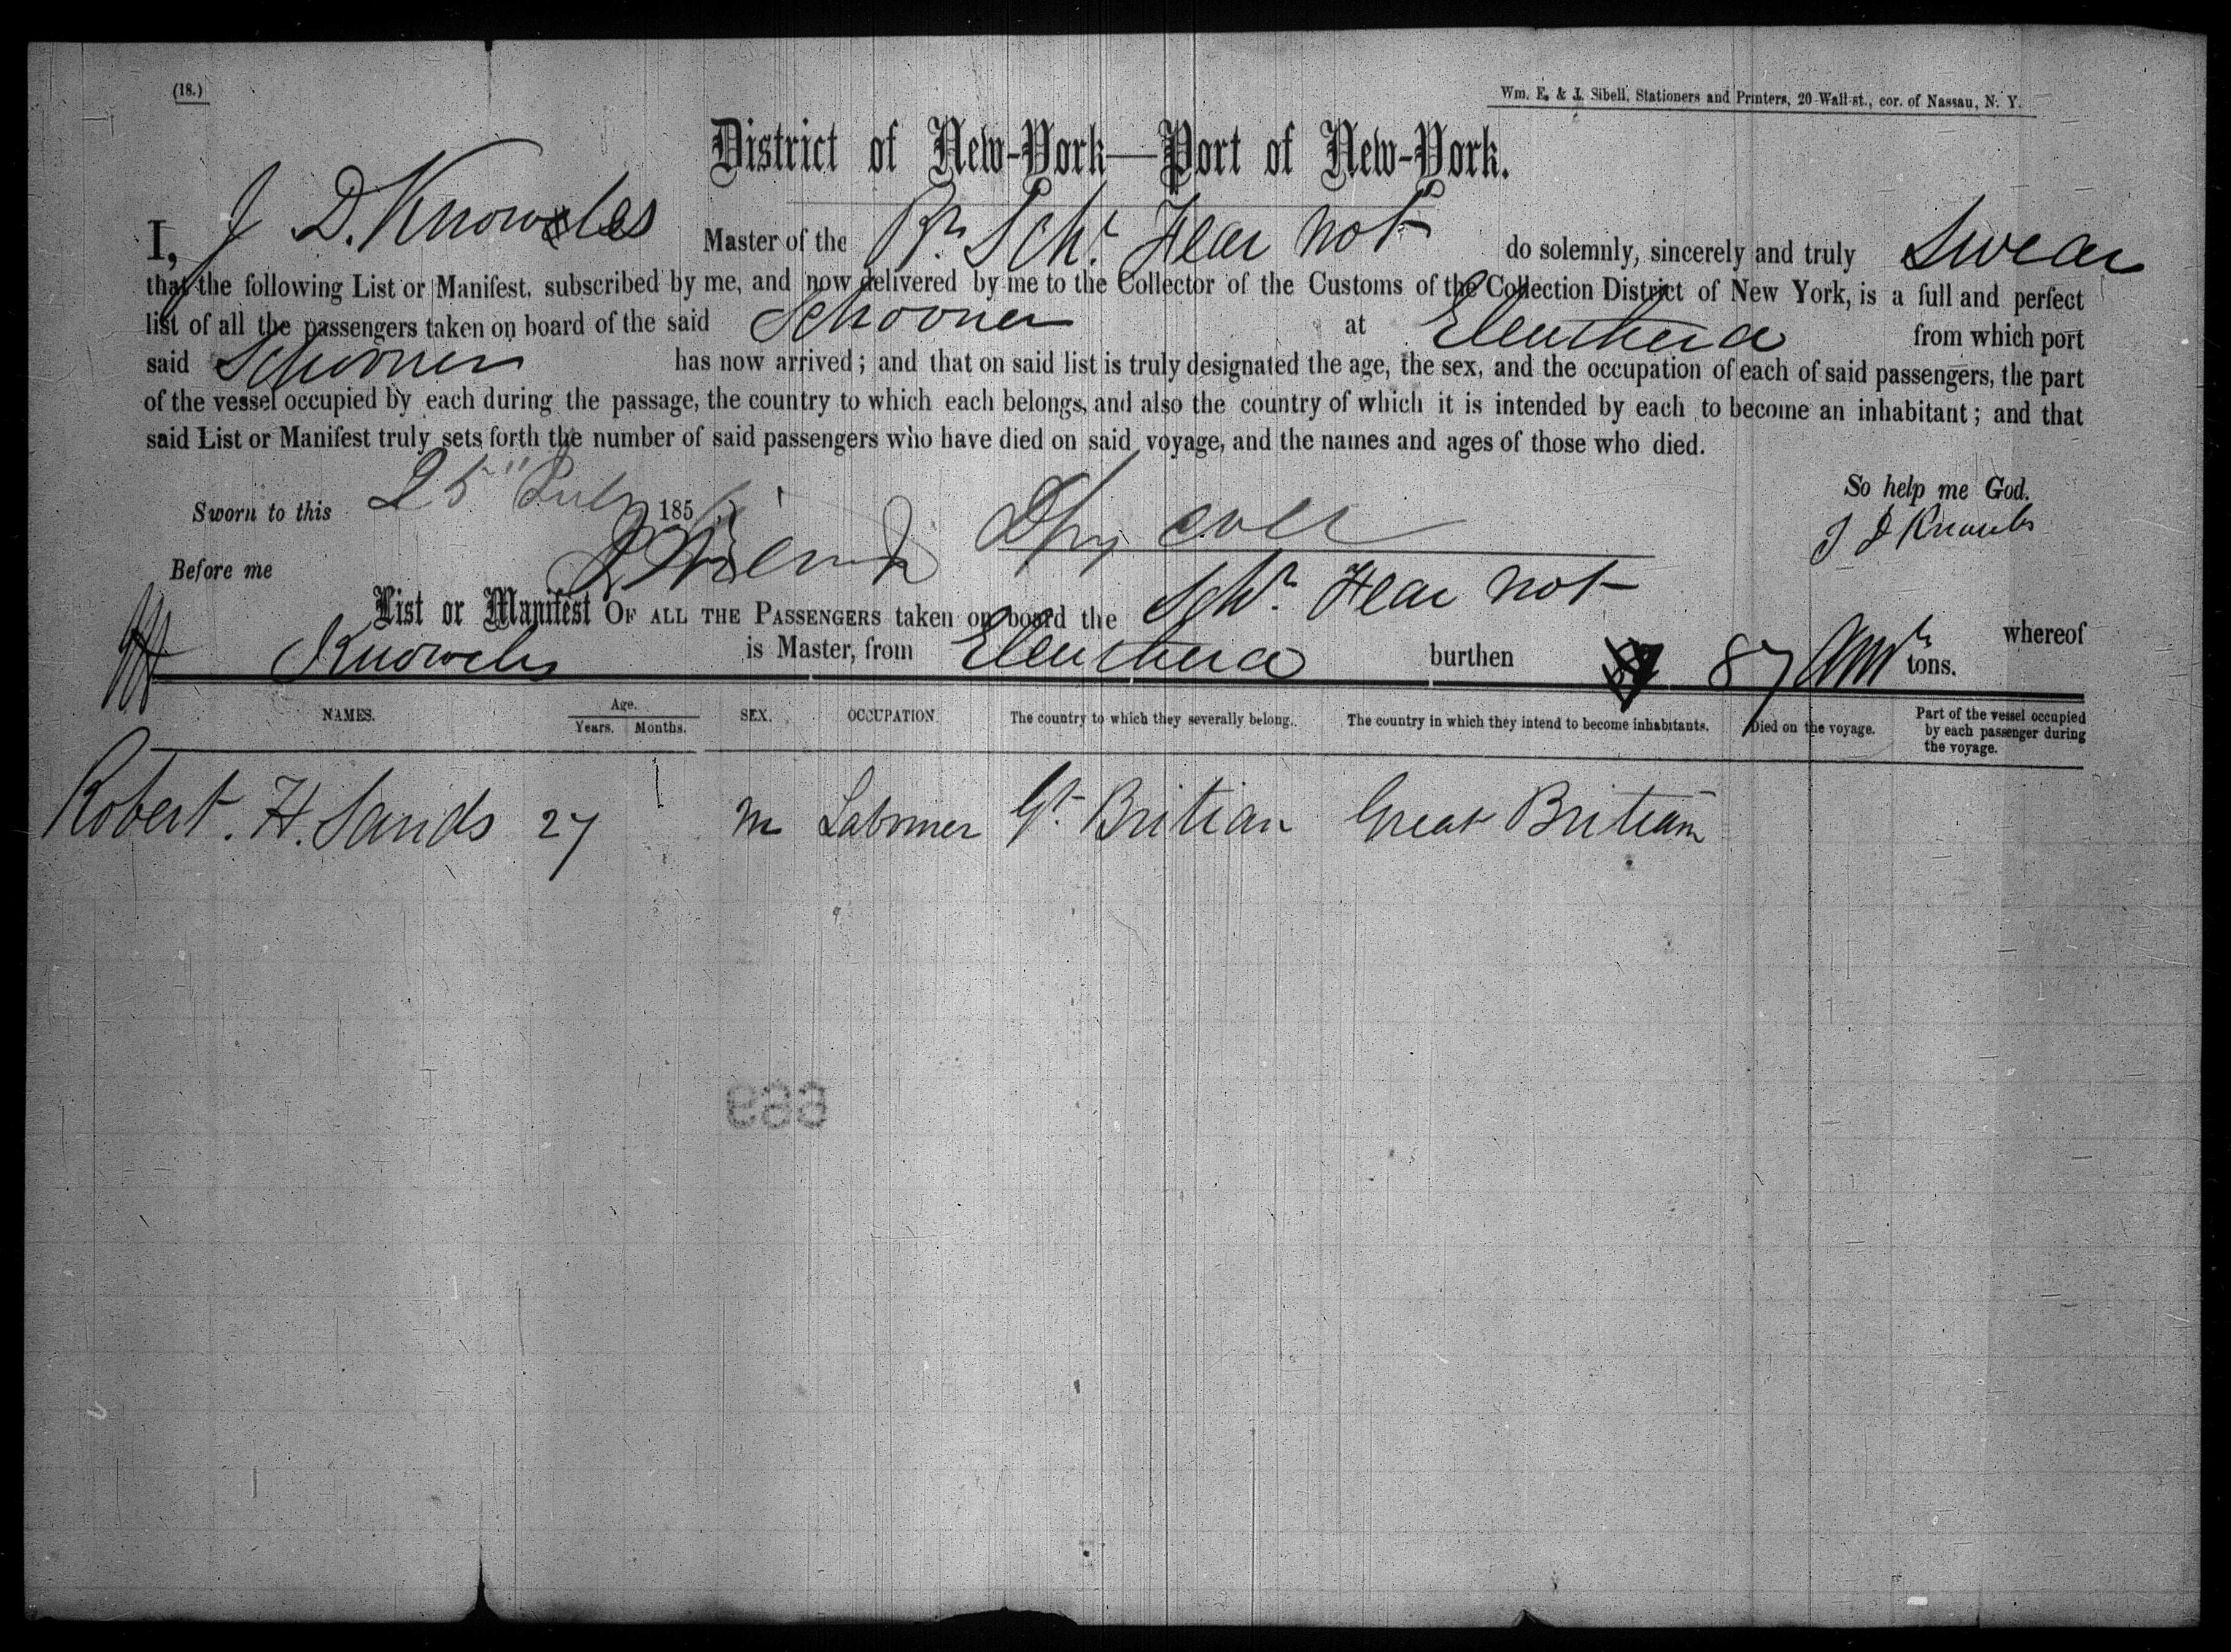 (18.)
Wm. E. & J. Sibell, Stationers and Printers, 20 Wall-st., cor. of Nassau, N. Y.
District of New-York—Port of New-York.
I, J D. Knowles Master of the Br Schr Fear not do solemnly, sincerely and truly Swear
that the following List or Manifest, subscribed by me, and now delivered by me to the Collector of the Customs of the Collection District of New York, is a full and perfect
list of all the passengers taken on board of the said Schooner at Eleuthera from which port
said Schooner has now arrived; and that on said list is truly designated the age, the sex, and the occupation of each of said passengers, the part
of the vessel occupied by each during the passage, the country to which each belongs, and also the country of which it is intended by each to become an inhabitant; and that
said List or Manifest truly sets forth the number of said passengers who have died on said voyage, and the names and ages of those who died.
So help me God.
Sworn to this 25" July 185
J D Knowles
Before me Dpy coll
List or Manifest OF ALL THE PASSENGERS taken on board the Schr Fear not
whereof
Knowles is Master, from Eleuthera burthen 87 tons.
NAMES. Age. Years. Months. SEX. OCCUPATION. The country to which they severally belong. The country in which they intend to become inhabitants. Died on the voyage. Part of the vessel occupied by each passenger during the voyage.
Robert. H. Sands 27 m Labourer Gt. Britian Great Britiain